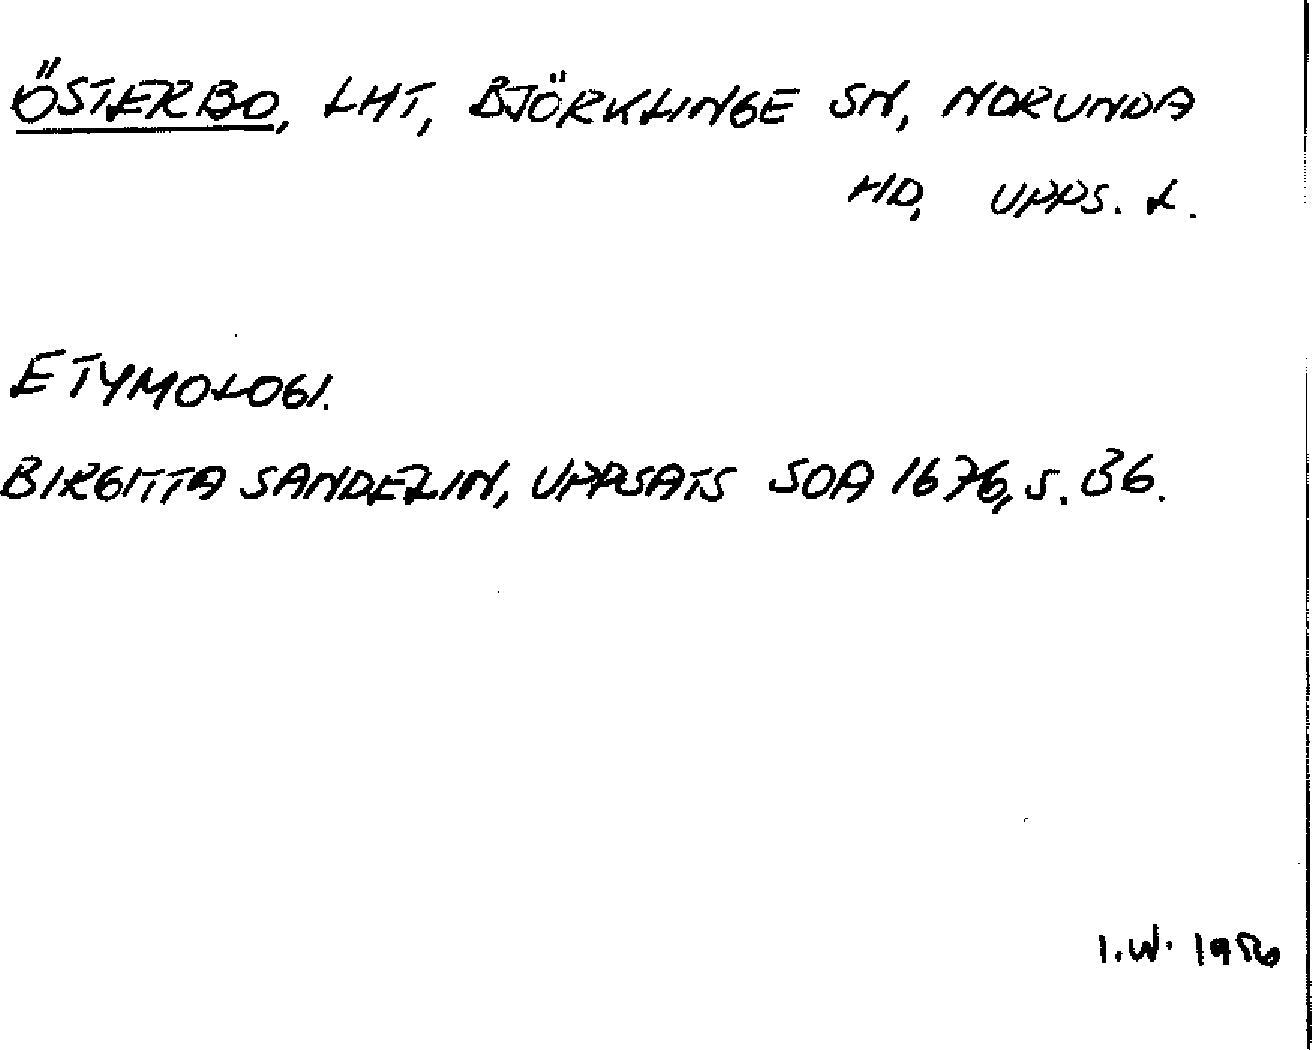 ÖSTERBO, LHT, BJÖRKLINGE SN, NORUNDA
HD, UPPS. L.
ETYMOLOGI.
BIRGITTA SANDELIN, UPPSATS SOA 1676, S. 36.
I.W.